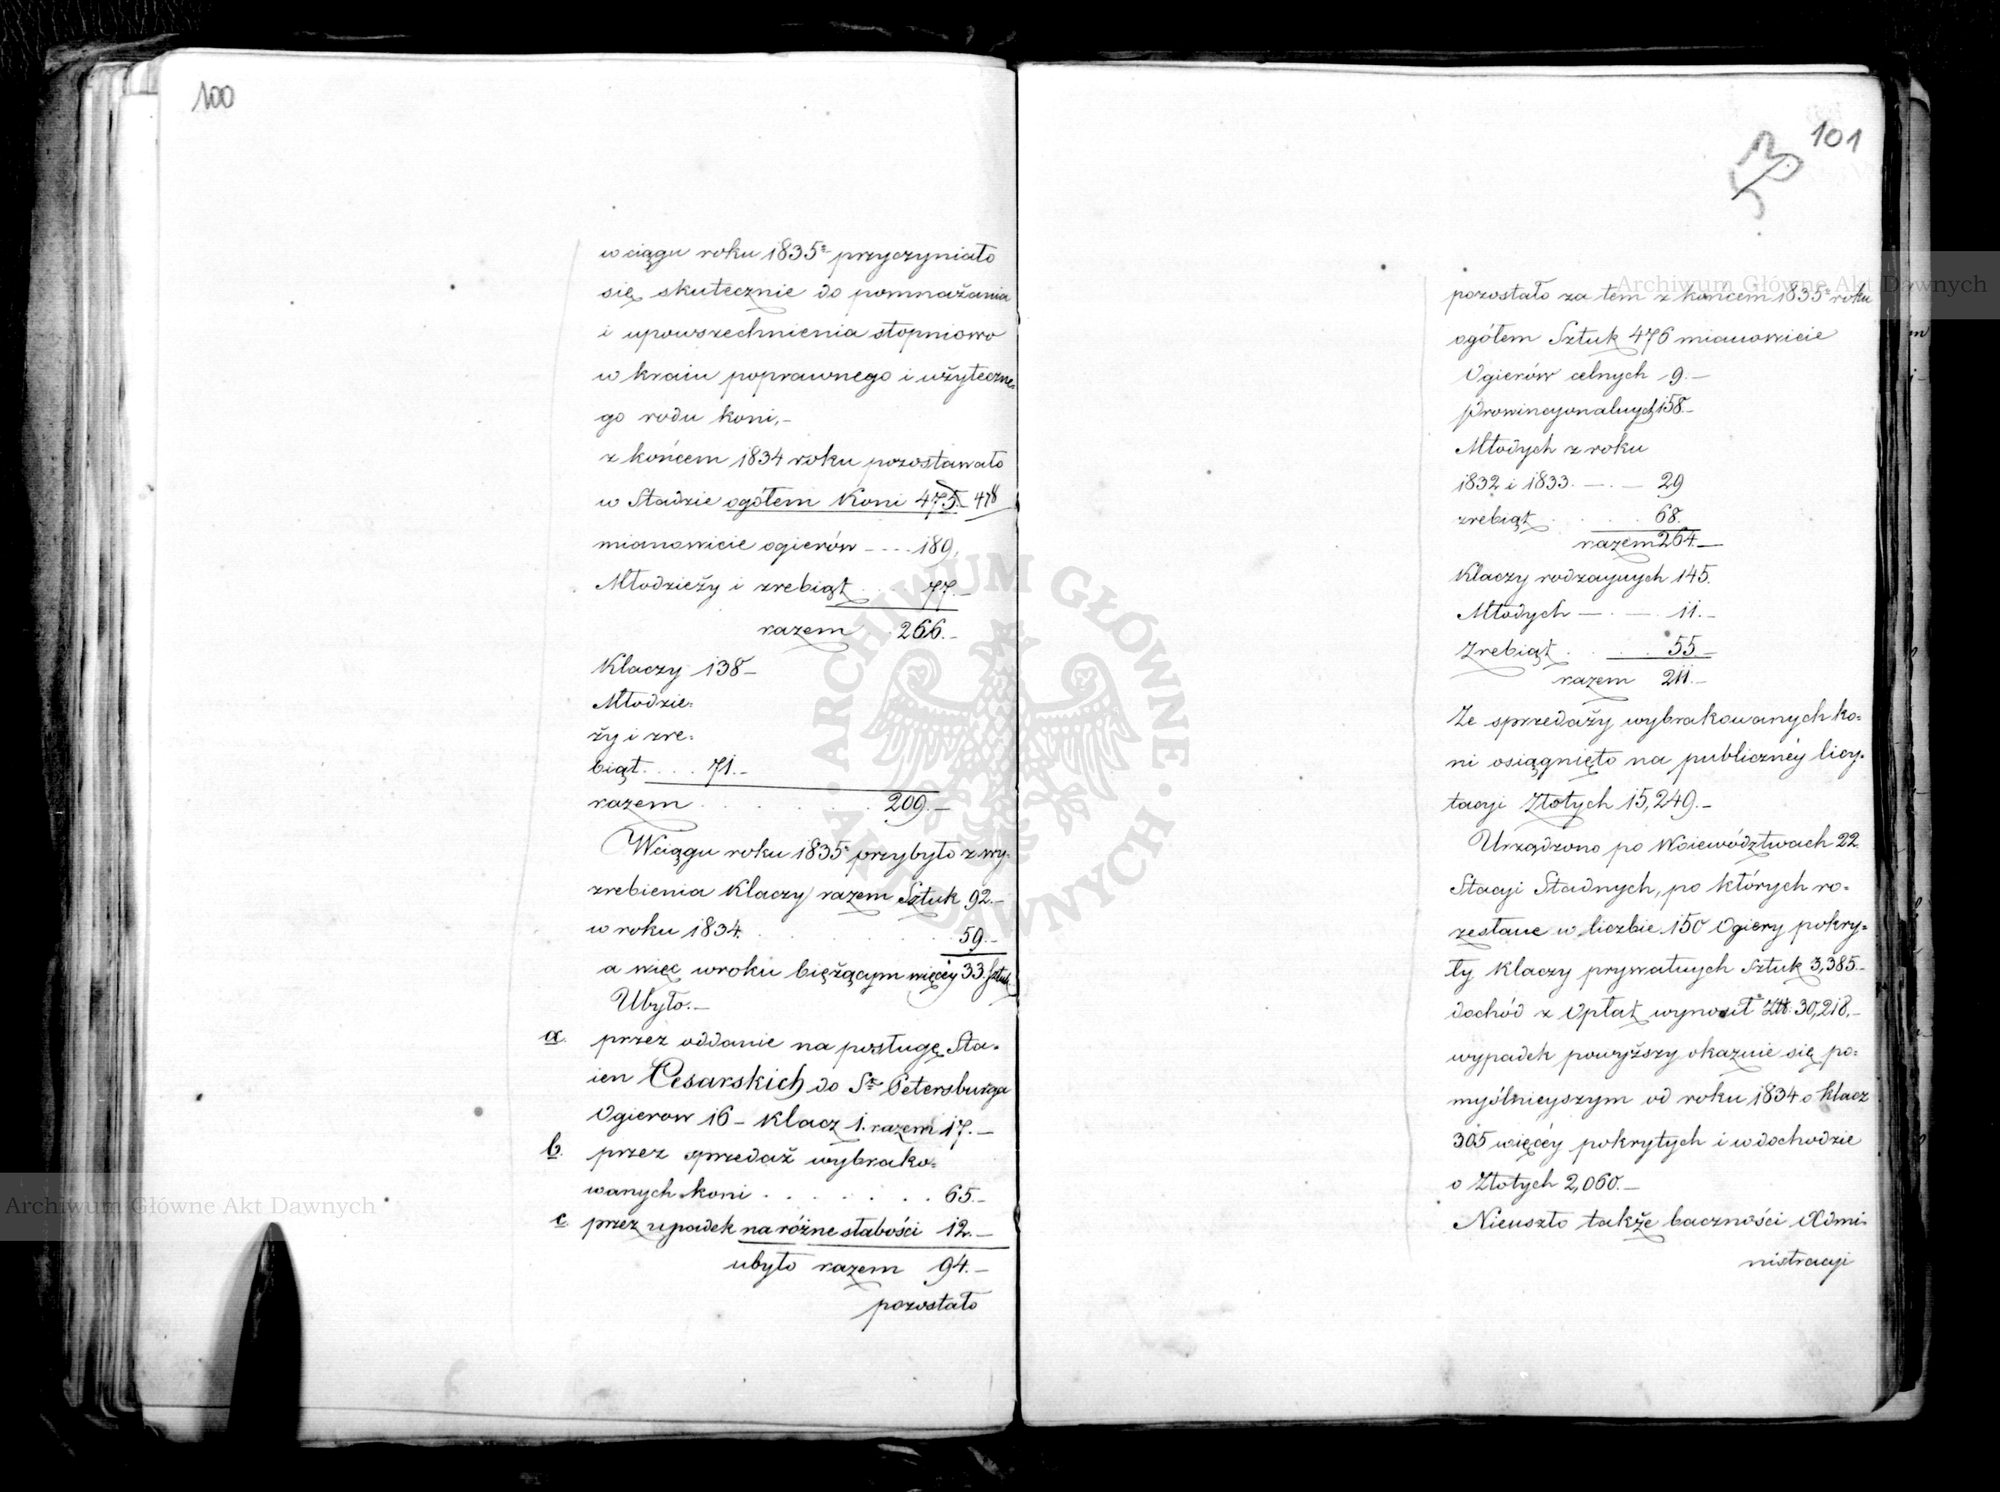 100
w ciągu roku 1835º przyczyniało
się skutecznie do pomnażania
i upowszechnienia stopniowo
w kraiu poprawnego i użyteczne-
go rodu koni,-
z końcem 1834 roku pozostawało
w Stadzie ogółem Koni 475.- 478
mianowicie ogierów - - - 189.
Młodzieży i zrebiąt . . . 77.-
razem . 266.-
Klaczy 138-
Młodzie=
ży i zre=
biąt . . . . 71.-
razem . . . . . . 209.-
W ciągu roku 1835º przybyło z wy-
zrebienia Klaczy razem Sztuk 92.-
w roku 1834. . . . . . . 59.-
a więc w roku bieżącym więcéy 33. Sztuk
Ubyło.-
a. przez oddanie na posługę Sta=
ien Cesarskich do Sº Petersburga
Ogierow 16 - Klacz 1. razem 17.-
b. przez sprzedaż wybrako=
wanych koni . . . . . . . 65.-
c przez upadek na różne słabości 12.-
ubyło razem 94.-
pozostało
101
53
pozostało za tem z końcem 1835º roku
ogółem Sztuk 476 mianowicie
Ogierów celnych 9.-
prowincyonalnych 158.-
Młodych z roku
1832 i 1833. - . - 29
zrebiąt . . . . 68.
razem 264.-
Klaczy rodzaynych 145.
Młodych - . - . 11.-
Zrebiąt . . . . 55.-
razem 211.-
Ze sprzedaży wybrakowanych ko=
ni osiągnięto na publicznéy licy-
tacyi Złotych 15,249.-
Urządzono po Woiewództwach 22
Stacyi Stadnych, po których ro=
zesłane w liczbie 150 Ogiery pokry=
ły Klaczy prywatnych Sztuk 3,385.-
dochód z Opłat wynosił Złt. 30,218.-
wypadek powyższy okazuie się po=
myślnieyszym od roku 1834 o klacz
305 więcéy pokrytych i w dochodzie
o Złotych 2,060.-
Nieuszło także baczności Admi-
nistracyi
Archiwum Główne Akt Dawnych
Archiwum Główne Akt Dawnych
ARCHIWUM GŁÓWNE · AKT DAWNYCH ·